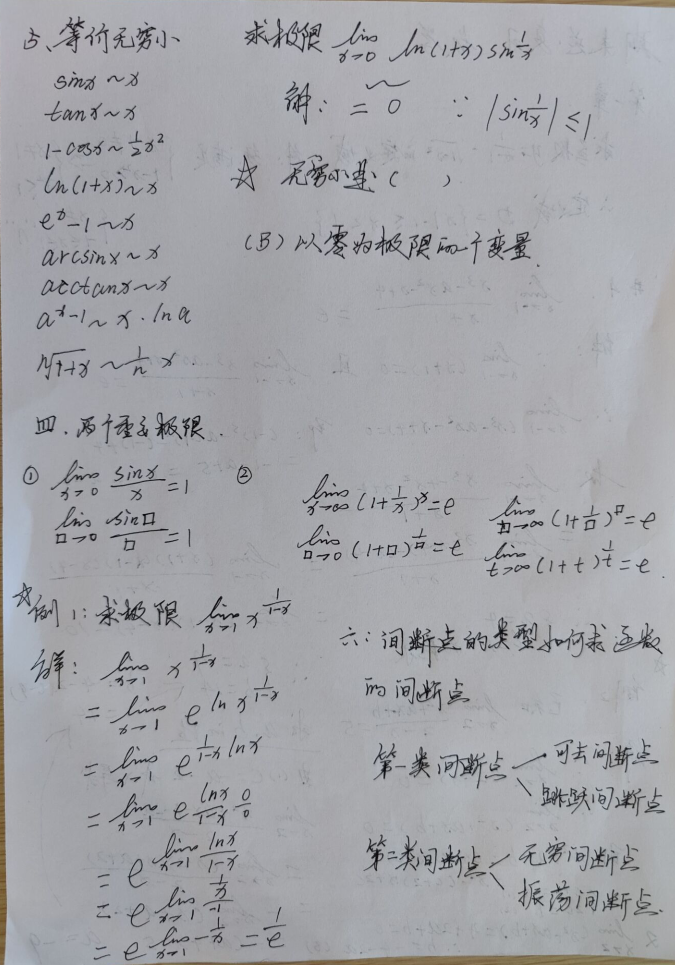 五、等价无穷小
sinx~x
tanx~x
1-cosx~½x²
ln(1+x)~x
eˣ-1~x
arcsinx~x
arctanx~x
aˣ-1~x·lna
ⁿ√1+x ~ 1/n x
求极限 lim x→0 ln(1+x) sin 1/x
解: = 0 ∵ |sin 1/x| ≤ 1
☆ 无穷小是( )
(B) 以零为极限的一个变量.
四、两个重要极限.
① lim x→0 sinx/x = 1
lim □→0 sin□/□ = 1
② lim x→∞ (1+1/x)ˣ = e
lim □→0 (1+□)^(1/□) = e
lim □→∞ (1+1/□)^□ = e
lim t→∞ (1+t)^(1/t) = e.
☆例1: 求极限 lim x→1 x^(1/(1-x))
解: lim x→1 x^(1/(1-x))
= lim x→1 e^(ln x^(1/(1-x)))
= lim x→1 e^(1/(1-x) lnx)
= lim x→1 e^(lnx/(1-x)) 0/0
= e^(lim x→1 lnx/(1-x))
= e^(lim x→1 (1/x)/(-1))
= e^(lim x→1 -1/x) = 1/e
六: 间断点的类型如何求函数
的间断点
第一类间断点 可去间断点
跳跃间断点
第二类间断点 无穷间断点
振荡间断点.